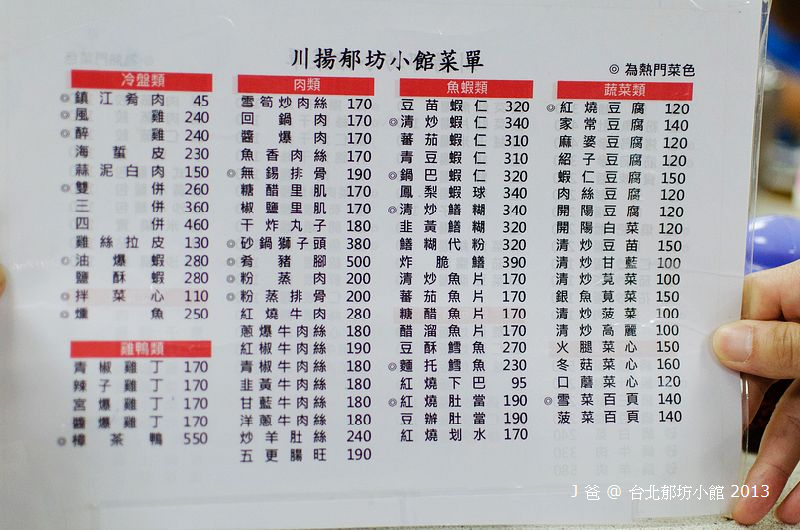 川揚郁坊小館菜單
◎ 為熱門菜色
冷盤類
◎鎮江肴肉 45
◎風雞 240
◎醉雞 240
海蜇皮 230
蒜泥白肉 150
◎雙併 260
三併 360
四併 460
雞絲拉皮 130
◎油爆蝦 280
鹽酥蝦 280
◎拌菜心 110
◎燻魚 250
雞鴨類
青椒雞丁 170
辣子雞丁 170
宮爆雞丁 170
醬爆雞丁 170
◎樟茶鴨 550
肉類
雪筍炒肉絲 170
回鍋肉 170
醬爆肉 170
魚香肉絲 170
◎無錫排骨 190
糖醋里肌 170
椒鹽里肌 170
干炸丸子 180
◎砂鍋獅子頭 380
◎肴豬腳 500
◎粉蒸肉 200
◎粉蒸排骨 200
紅燒牛肉 280
蔥爆牛肉絲 180
紅椒牛肉絲 190
青椒牛肉絲 180
韭黃牛肉絲 180
甘藍牛肉絲 180
洋蔥牛肉絲 180
炒羊肚絲 240
五更腸旺 190
魚蝦類
豆苗蝦仁 320
◎清炒蝦仁 340
蕃茄蝦仁 310
青豆蝦仁 310
◎鍋巴蝦仁 320
鳳梨蝦球 340
◎清炒鱔糊 340
韭黃鱔糊 320
鱔糊代粉 320
炸脆鱔 390
清炒魚片 170
蕃茄魚片 170
糖醋魚片 170
醋溜魚片 170
豆酥鱈魚 270
◎麵托鱈魚 230
紅燒下巴 95
◎紅燒肚當 190
豆辦肚當 190
紅燒划水 170
蔬菜類
◎紅燒豆腐 120
家常豆腐 140
麻婆豆腐 120
紹子豆腐 120
蝦仁豆腐 150
肉絲豆腐 120
開陽豆腐 120
開陽白菜 120
清炒豆苗 150
清炒甘藍 100
清炒莧菜 100
銀魚莧菜 150
清炒菠菜 100
清炒高麗 100
火腿菜心 150
冬菇菜心 160
口蘑菜心 120
◎雪菜百頁 140
菠菜百頁 140
J 爸 @ 台北郁坊小館 2013